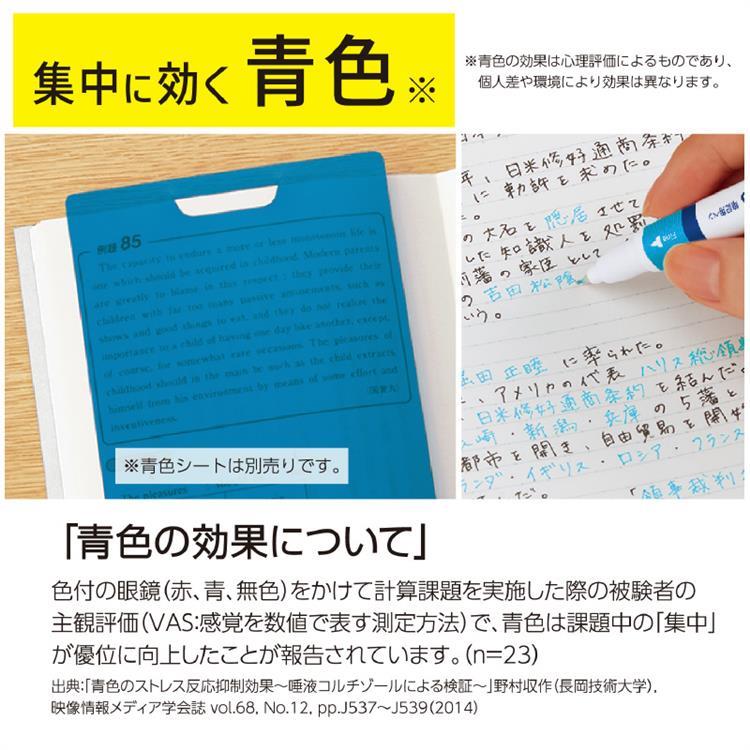 集中に効く 青色※
※青色の効果は心理評価によるものであり、
個人差や環境により効果は異なります。
例題 85
The capacity to endure a more or less monotonous life is
one which should be acquired in childhood. Modern parents
are greatly to blame in this respect; they provide their
children with far too many passive amusements, such as
shows and good things to eat, and they do not realize the
importance to a child of having one day like another, except,
of course, for somewhat rare occasions. The pleasures of
childhood should in the main be such as the child extracts
himself from his environment by means of some effort and
inventiveness.
※青色シートは別売りです。
The pleasures
、日米修好通商条約
に勅許を求めた。
の大名を隠居させて
した知識人を処罰
藩の家臣として
の吉田松陰
いう。
Fine
暗記用ペン
堀田正睦に率られた。
、アメリカの代表ハリス総領事
日米修好通商条約を結んだ。
崎・新潟・兵庫の5藩と
都市を開き、自由貿易を開始
ランダ・イギリス・ロシア・フランス
「領事裁判
「青色の効果について」
色付の眼鏡(赤、青、無色)をかけて計算課題を実施した際の被験者の
主観評価(VAS:感覚を数値で表す測定方法)で、青色は課題中の「集中」
が優位に向上したことが報告されています。(n=23)
出典:「青色のストレス反応抑制効果~唾液コルチゾールによる検証~」野村収作(長岡技術大学),
映像情報メディア学会誌 vol.68, No.12, pp.J537~J539(2014)